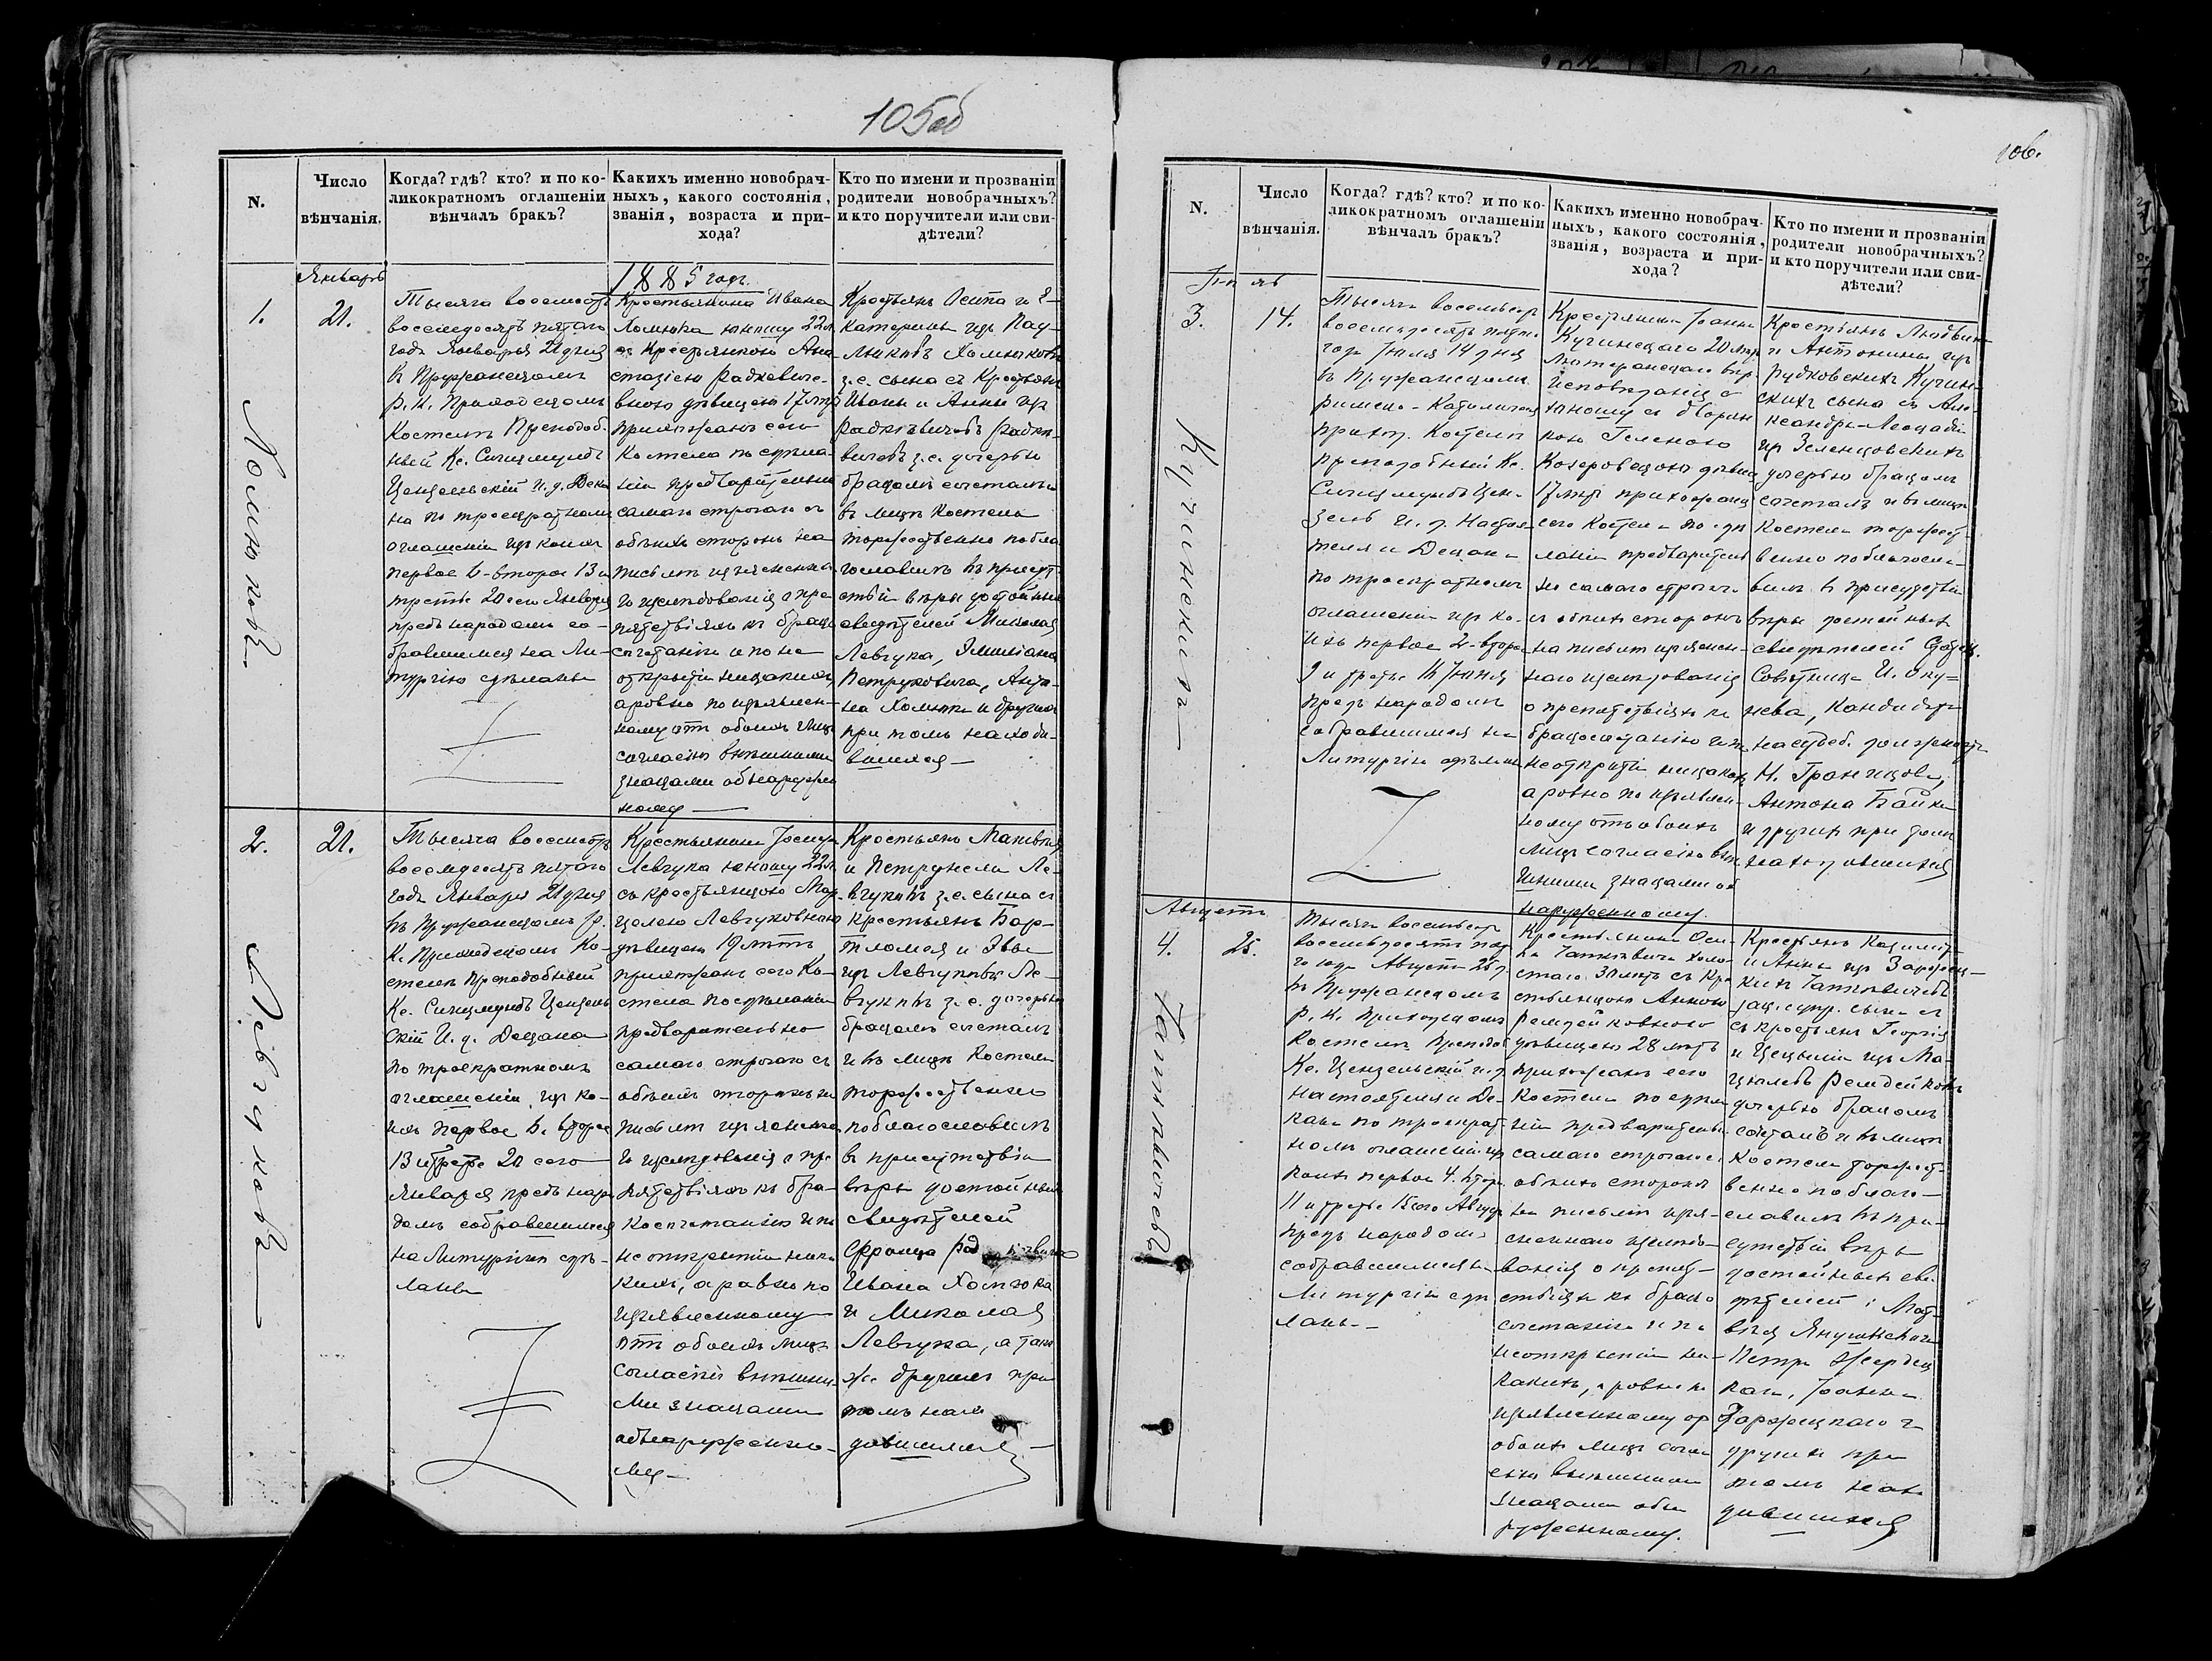 105об
N.
Число
вѣнчанія.
Когда? гдѣ? кто? и по ко-
ликократномъ оглашеніи
вѣнчалъ бракъ?
Какихъ именно новобрач-
ныхъ, какого состоянія,
званія, возраста и при-
хода?
Кто по имени и прозванію
родители новобрачныхъ?
и кто поручители или сви-
дѣтели?
Январь
1885 годъ.
1.
21.
Хомюковъ.
Тысяча восемьсотъ
восемдесятъ пятаго
года Января 21 дня
въ Пружанскомъ
Р. К. Приходскомъ
Костелѣ Преподоб-
ный Кс. Сигизмундъ
Цензельскій И. д. Дека
на по троекратномъ
оглашеніи изъ коихъ
первое 6 второе 13 и
третье 20 сего Января
предъ народомъ со-
бравшимся на Ли-
тургію сдѣланы
Крестьянина Ивана
Хомюка юношу 22 л.
съ Крестьянкою Ана-
стазіею Радкевиче-
вною дѣвицею 17 лѣтъ
прихожанъ сего
Костела по сдѣла-
ніи предварительно
самаго строгаго съ
обѣихъ сторонъ на
письмѣ изъясненна-
го изслѣдованія о пре-
пятствіяхъ къ брако-
сочетанію и по не
открытіи никакихъ,
а равно по изъявлен-
ному отъ обоихъ лицъ
согласію внѣшними
знаками обнаружен
ному
Крестьянъ Осипа и Е-
катерины изъ
Хомюковъ
з. с. сына съ Крестьянъ
Ивана и Анны изъ
Радкевичевъ з. с. дочерью
бракомъ сочеталъ и
въ лицѣ Костела
торжественно побла-
гословилъ въ присут-
ствіи вѣры достойныхъ
свидѣтелей Николая
Левчука, Эмиліана
Петруковича, Анто-
на Хомюка и другихъ
при томъ находи-
вшихся
2.
21.
Левчуковъ
Тысяча восемьсотъ
восемдесятъ пятаго
года Января 21 дня
въ Пружанскомъ Р.
К. Приходскомъ Ко-
стелѣ Преподобный
Кс. Сигизмундъ Цензель
скій И. д. Декана
по троекратномъ
оглашеніи изъ ко-
ихъ первое 6. второе
13 и третье 20 сего
Января предъ наро
домъ собравшимся
на Литургію сдѣ-
ланы
Крестьянина Іосифа
Левчука юношу 22 л.
съ крестьянкою Мар-
целею Левчуковною
дѣвицею 19 лѣтъ
прихожанъ сего Ко-
стела по сдѣланіи
предварительно
самаго строгаго съ
обѣихъ сторонъ на
письмѣ изъясненна
го изслѣдованія о пре
пятствіяхъ къ бра-
косочетанію и по
не открытіи ника
кихъ, а равно по
изъявленному
отъ обоихъ лицъ
согласію внѣшни-
ми знаками
обнаруженно-
му
Крестьянъ Матвѣя
и Петрунели Ле-
вчуковъ з. с. сына съ
крестьянъ Бар-
тломея и Эвы
изъ Левчуковъ Ле-
вчуковъ з. с. дочерью
бракомъ сочеталъ
и въ лицѣ Костела
торжественно
поблагословилъ
въ присутствіи
вѣры достойныхъ
свидѣтелей
Франца
Ивана Хомюка
и Миколая
Левчука, а так
же другихъ при
томъ нахо
дившихся
106.
N.
Число
вѣнчанія.
Когда? гдѣ? кто? и по ко-
ликократномъ оглашеніи
вѣнчалъ бракъ?
Какихъ именно новобрач-
ныхъ, какого состоянія,
званія, возраста и при-
хода?
Кто по имени и прозваніи
родители новобрачныхъ?
и кто поручители или сви-
дѣтели?
3.
14.
Кучинскихъ
Тысяча восемьсотъ
восемьдесятъ пятаго
года Іюля 14 дня
въ Пружанскомъ
Римско-Католическ
прих. Костелѣ
преподобный Кс.
Сигизмундъ Цен-
зель И. д. Настоя-
теля и Декана
по троекратномъ
оглашеніи изъ ко-
ихъ первое второе
9 и третье
предъ народомъ
собравшимся на
Литургію сдѣланы
Крестьянина Іоанна
Кучинскаго 20 лѣтъ
Лютеранскаго вѣр.
исповѣданія
юношу съ дворян
кою Геленою
Козеровскою дѣвиц
17 лѣтъ прихожанъ
сего Костела по сдѣ
ланіи предварительно
самаго строгаго
съ обѣихъ сторонъ
на письмѣ изъяснен-
наго изслѣдованія
о препятствіяхъ къ
бракосочетанію и по
неоткрытіи никакихъ
а равно по изъявлен-
ному отъ обоихъ
лицъ согласію внѣ
шними знаками об
наруженному.
Крестьянъ Людвика
и Антонины изъ
Рудковскихъ Кучин-
скихъ сына съ Але-
ксандра-Леокадіи
изъ Зеленцовскихъ
дочерью бракомъ
сочеталъ и въ лицѣ
Костела торжест-
венно поблагосло-
вилъ въ присутствіи
вѣры достойныхъ
свидѣтелей
Совѣтника И. Оку-
нева, Кандидата
на судеб. должность
Н.
Антона Байки
и другихъ при томъ
находившихся
Августъ
4.
25.
Тысяча восемьсотъ
восемьдесятъ пят
го года Августа 25 д.
въ Пружанскомъ
Р. К. приходскомъ
Костелѣ Преподоб
Кс. Цензельскій и. д.
настоятеля и Де-
кана по троекрат
номъ оглашеніи изъ
коихъ первое 4. втор.
11 и третье сего Августа
предъ народомъ
собравшимся на
Литургію сдѣ
ланы
Крестьянина Оси-
па холо-
стаго 30 лѣтъ съ Кре
стьянкою Анною
Ремдейковною
дѣвицею 28 лѣтъ
прихожанъ сего
Костела по сдѣла
ніи предварительно
самаго строгаго съ
обѣихъ сторонъ
на письмѣ изъя-
сненнаго изслѣдо-
ванія о препят-
ствіяхъ къ брако
сочетанію и по
неоткрытіи ни-
какихъ, а равно по
изъявленному отъ
обоихъ лицъ согла
сію внѣшними
знаками обна
руженному.
Крестьянъ Казимір
и Анны изъ
зак. супр. сына съ
съ крестьянъ Георгія
и Цециліи изъ Ма-
Ремдейковъ
дочерью бракомъ
сочеталъ и въ лицѣ
Костела торжест-
венно поблаго-
словилъ въ при-
сутствіи вѣры
достойныхъ сви
дѣтелей: Мат-
вѣя Янушкевича
Петра
Іоанна
и
другихъ при
томъ нахо
дившихся